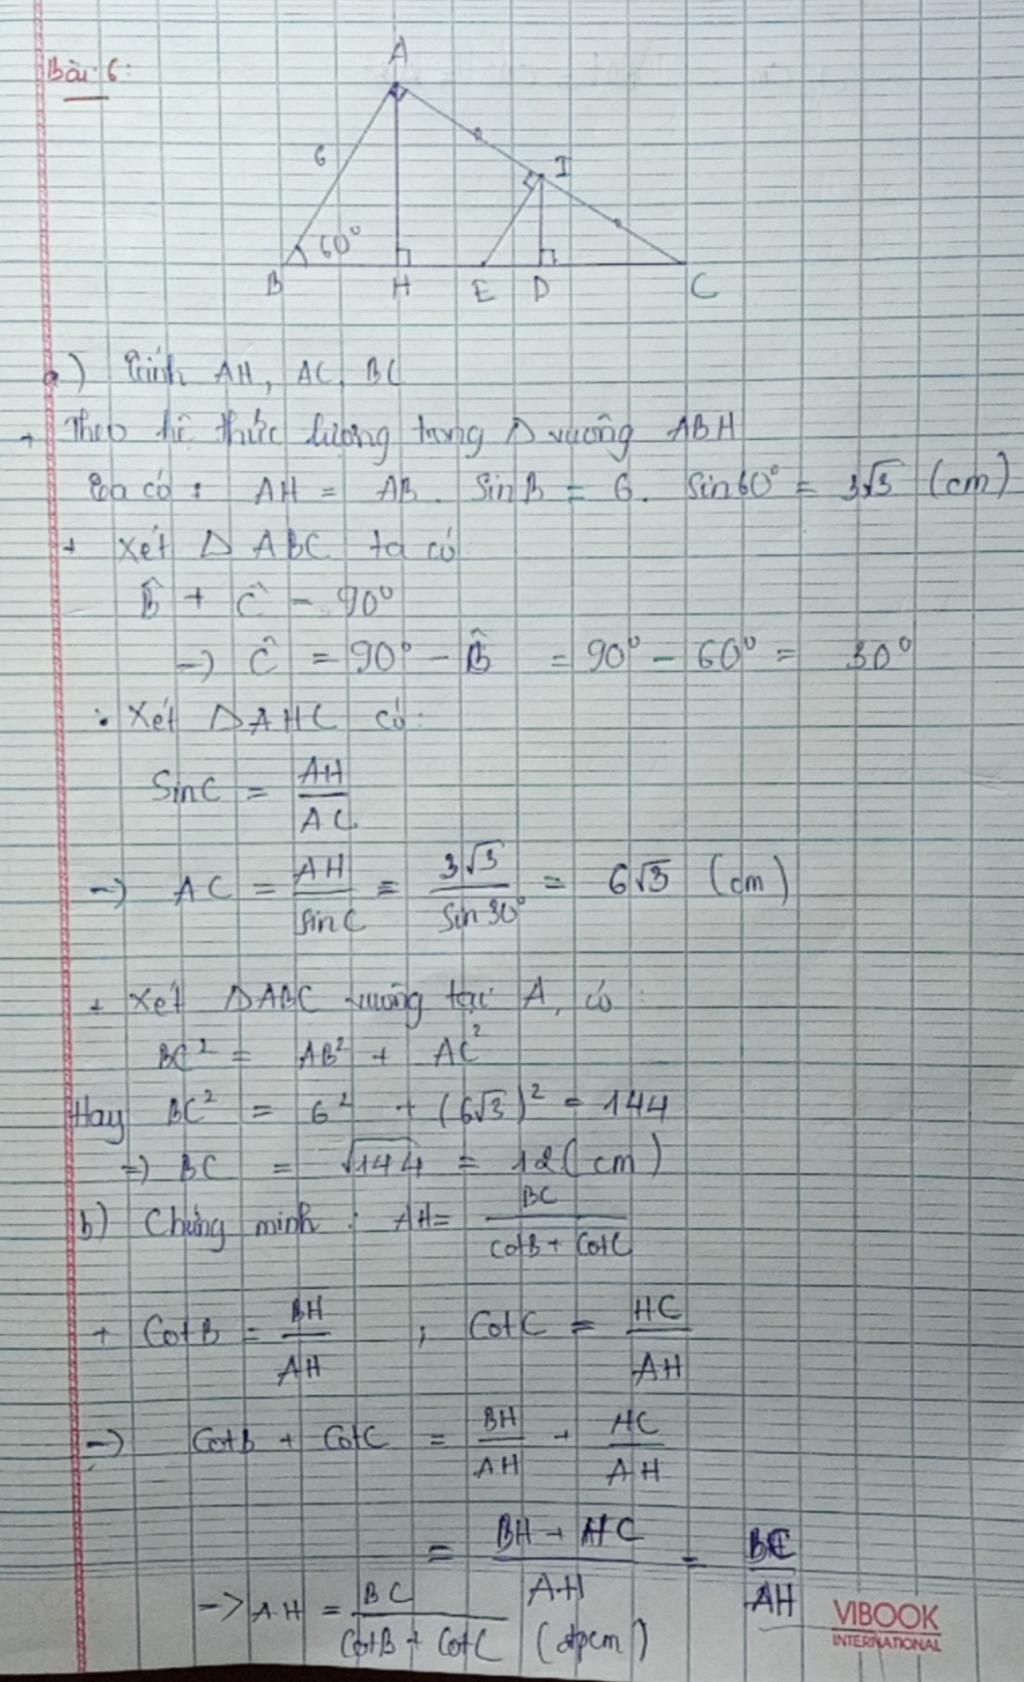 Bài 6:
A
6
I
60°
B H E D C
a) Tính AH, AC, BC
+ Theo hệ thức lượng trong Δ vuông ABH
Ta có : AH = AB. Sin B = 6. Sin 60° = 3√3 (cm)
+ Xét Δ ABC ta có
B̂ + Ĉ = 90°
=> Ĉ = 90° - B̂ = 90° - 60° = 30°
• Xét ΔAHC có:
Sin C = AH / AC
=> AC = AH / Sin C = 3√3 / Sin 30° = 6√3 (cm)
+ Xét ΔABC vuông tại A, có :
BC² = AB² + AC²
Hay BC² = 6² + (6√3)² = 144
=> BC = √144 = 12 (cm)
b) Chứng minh : AH = BC / CotB + CotC
+ CotB = BH / AH ; CotC = HC / AH
=> CotB + CotC = BH / AH + HC / AH
= BH + HC / AH = BC / AH
-> AH = BC / CotB + CotC (đpcm)
VIBOOK
INTERNATIONAL